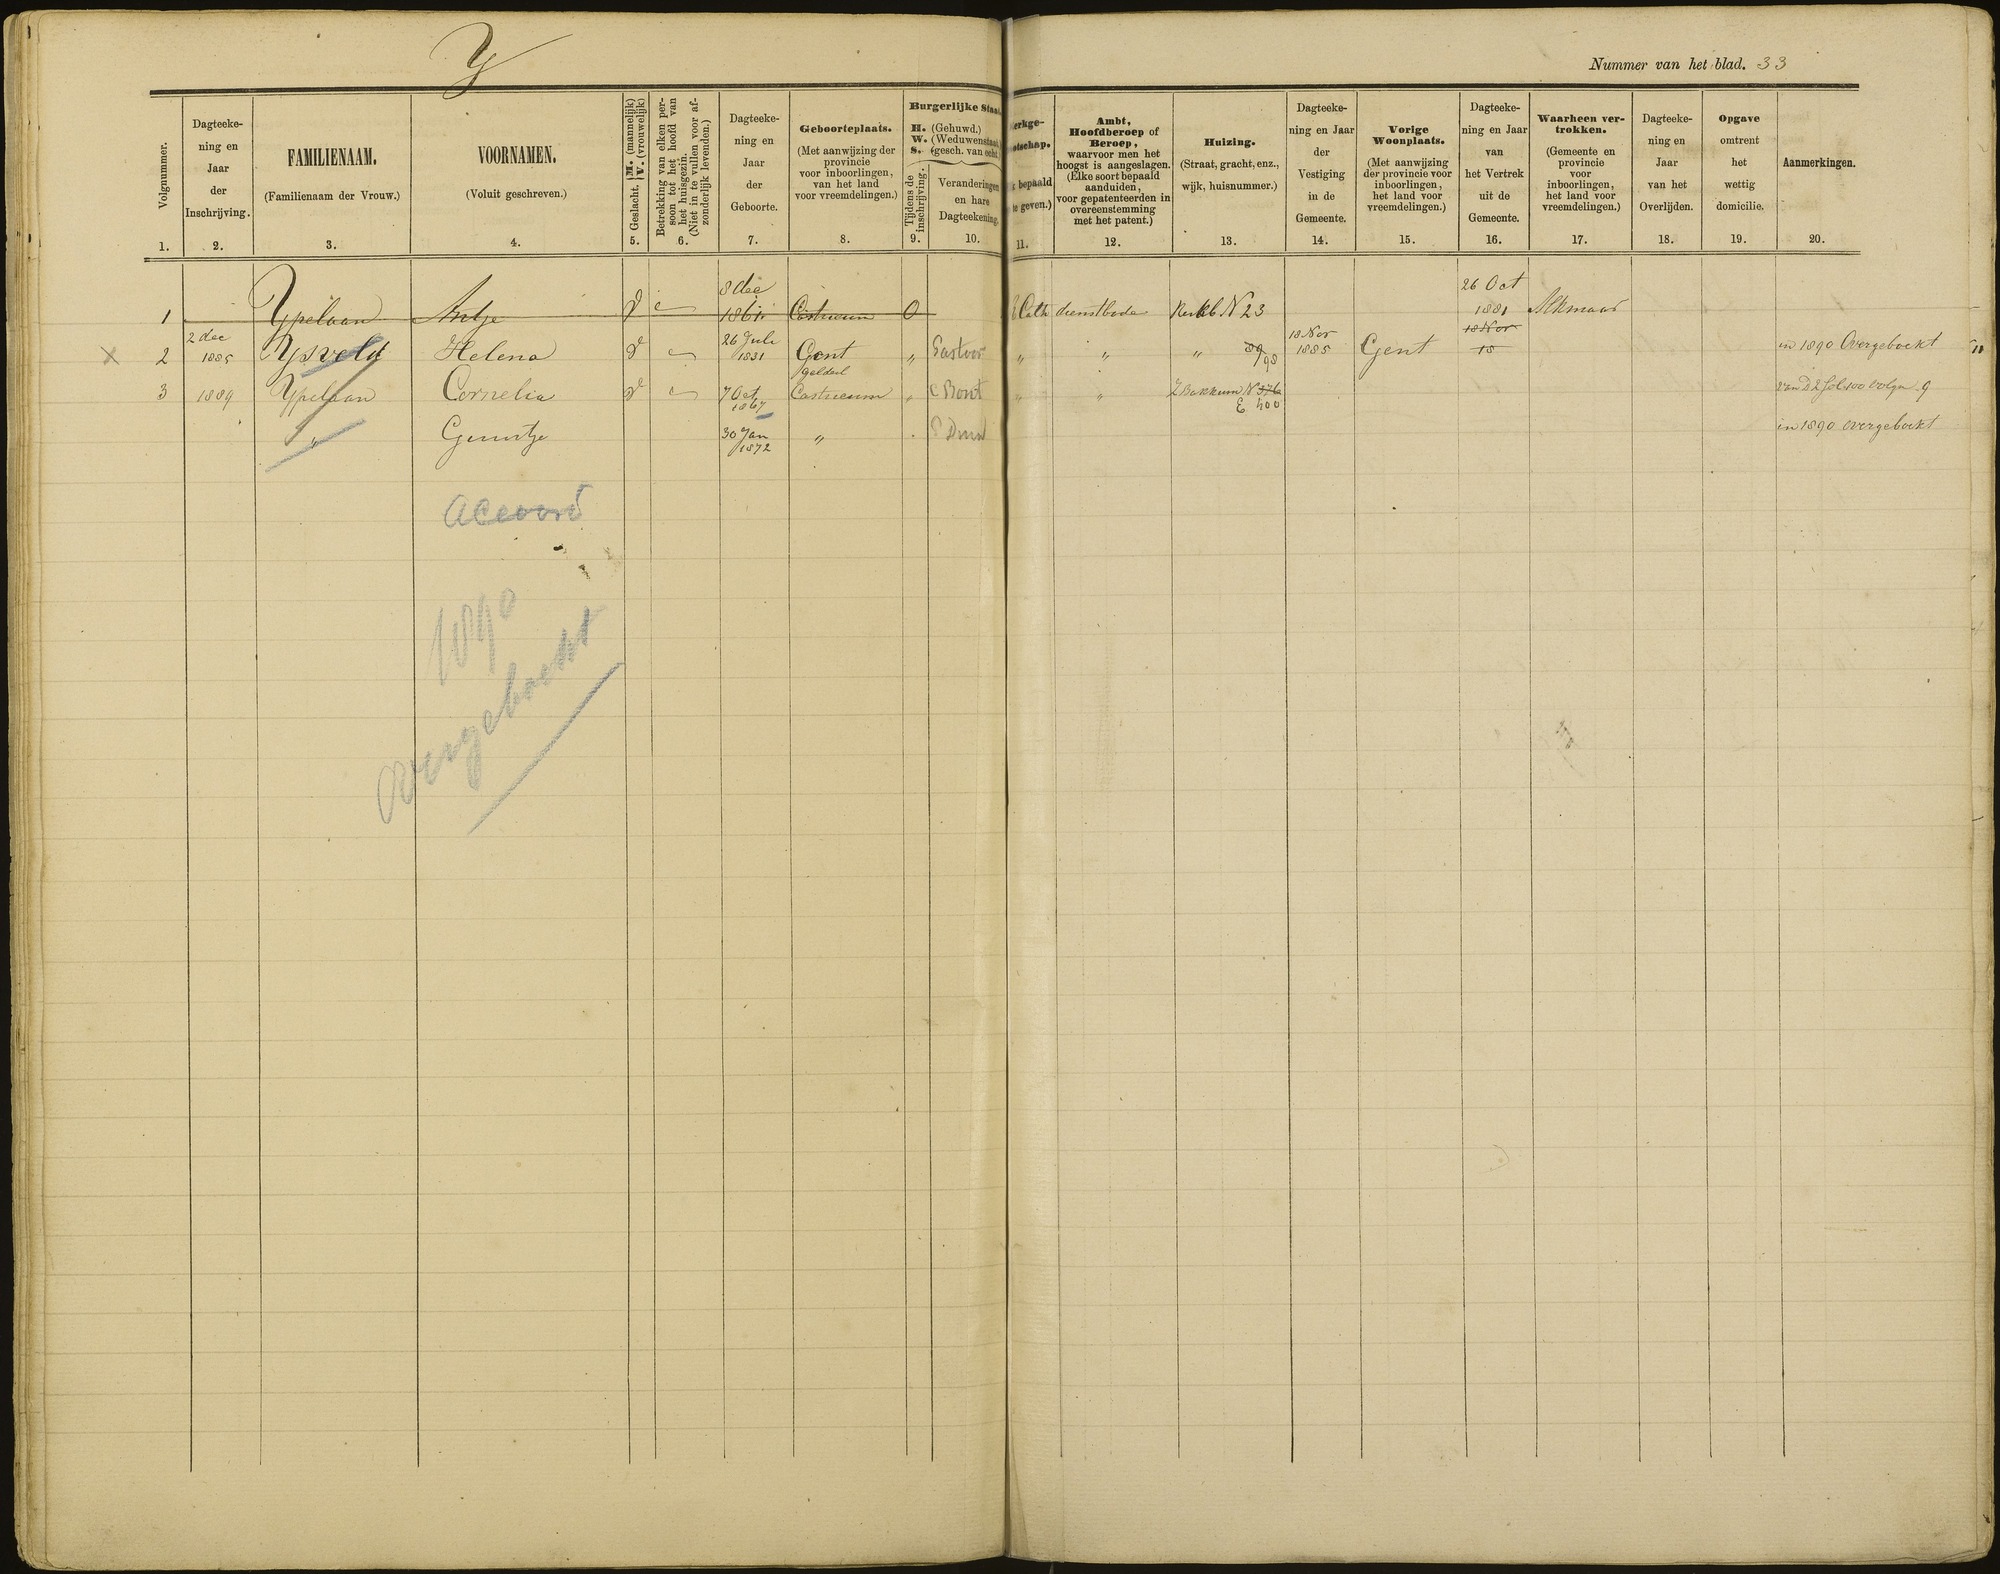 Y
Nummer van het blad. 33
Volgnummer.
1.
Dagteeke-
ning en
Jaar
der
Inschrijving.
2.
FAMILIENAAM.
(Familienaam der Vrouw.)
3.
VOORNAMEN.
(Voluit geschreven.)
4.
Geslacht. M. (mannelijk) V. (vrouwelijk)
5.
Betrekking van elken per-
soon tot het hoofd van
het huisgezin.
(Niet in te vullen voor af-
zonderlijk levenden.)
6.
Dagteeke-
ning en
Jaar
der
Geboorte.
7.
Geboorteplaats.
(Met aanwijzing der
provincie
voor inboorlingen,
van het land
voor vreemdelingen.)
8.
Burgerlijke Staat
H. (Gehuwd.)
W. (Weduwenstaat.)
S. (gesch. van echt.)
Tijdens de
inschrijving.
9.
Veranderingen
en hare
Dagteekening.
10.
erkge-
otschap.
bepaald
te geven.)
11.
Ambt,
Hoofdberoep of
Beroep,
waarvoor men het
hoogst is aangeslagen.
(Elke soort bepaald
aanduiden,
voor gepatenteerden in
overeenstemming
met het patent.)
12.
Huizing.
(Straat, gracht, enz.,
wijk, huisnummer.)
13.
Dagteeke-
ning en Jaar
der
Vestiging
in de
Gemeente.
14.
Vorige
Woonplaats.
(Met aanwijzing
der provincie voor
inboorlingen,
het land voor
vreemdelingen.)
15.
Dagteeke-
ning en Jaar
van
het Vertrek
uit de
Gemeente.
16.
Waarheen ver-
trokken.
(Gemeente en
provincie
voor
inboorlingen,
het land voor
vreemdelingen.)
17.
Dagteeke-
ning en
Jaar
van het
Overlijden.
18.
Opgave
omtrent
het
wettig
domicilie.
19.
Aanmerkingen.
20.
1 Ypelaan Antje V 8 dec Castricum O Cath dienstbode Kerkb N 23 26 Oct 1881 Alkmaar
X 2 2 dec 1885 Ysveld Helena V 26 Juli 1831 Gent " Pastoor " " " 89 98 18 Nov 1885 Gent 18 Nov 18 in 1890 Overgeboekt
3 1889 Ypelaan Cornelia V 7 Oct 1867 Castricum " C Bont " " Z Bakkum N 376 E 400 van D 2 fol 100 volgn 9
" Geurtje 30 Jan 1872 " in 1890 overgeboekt
accoord
1890
overgeboekt